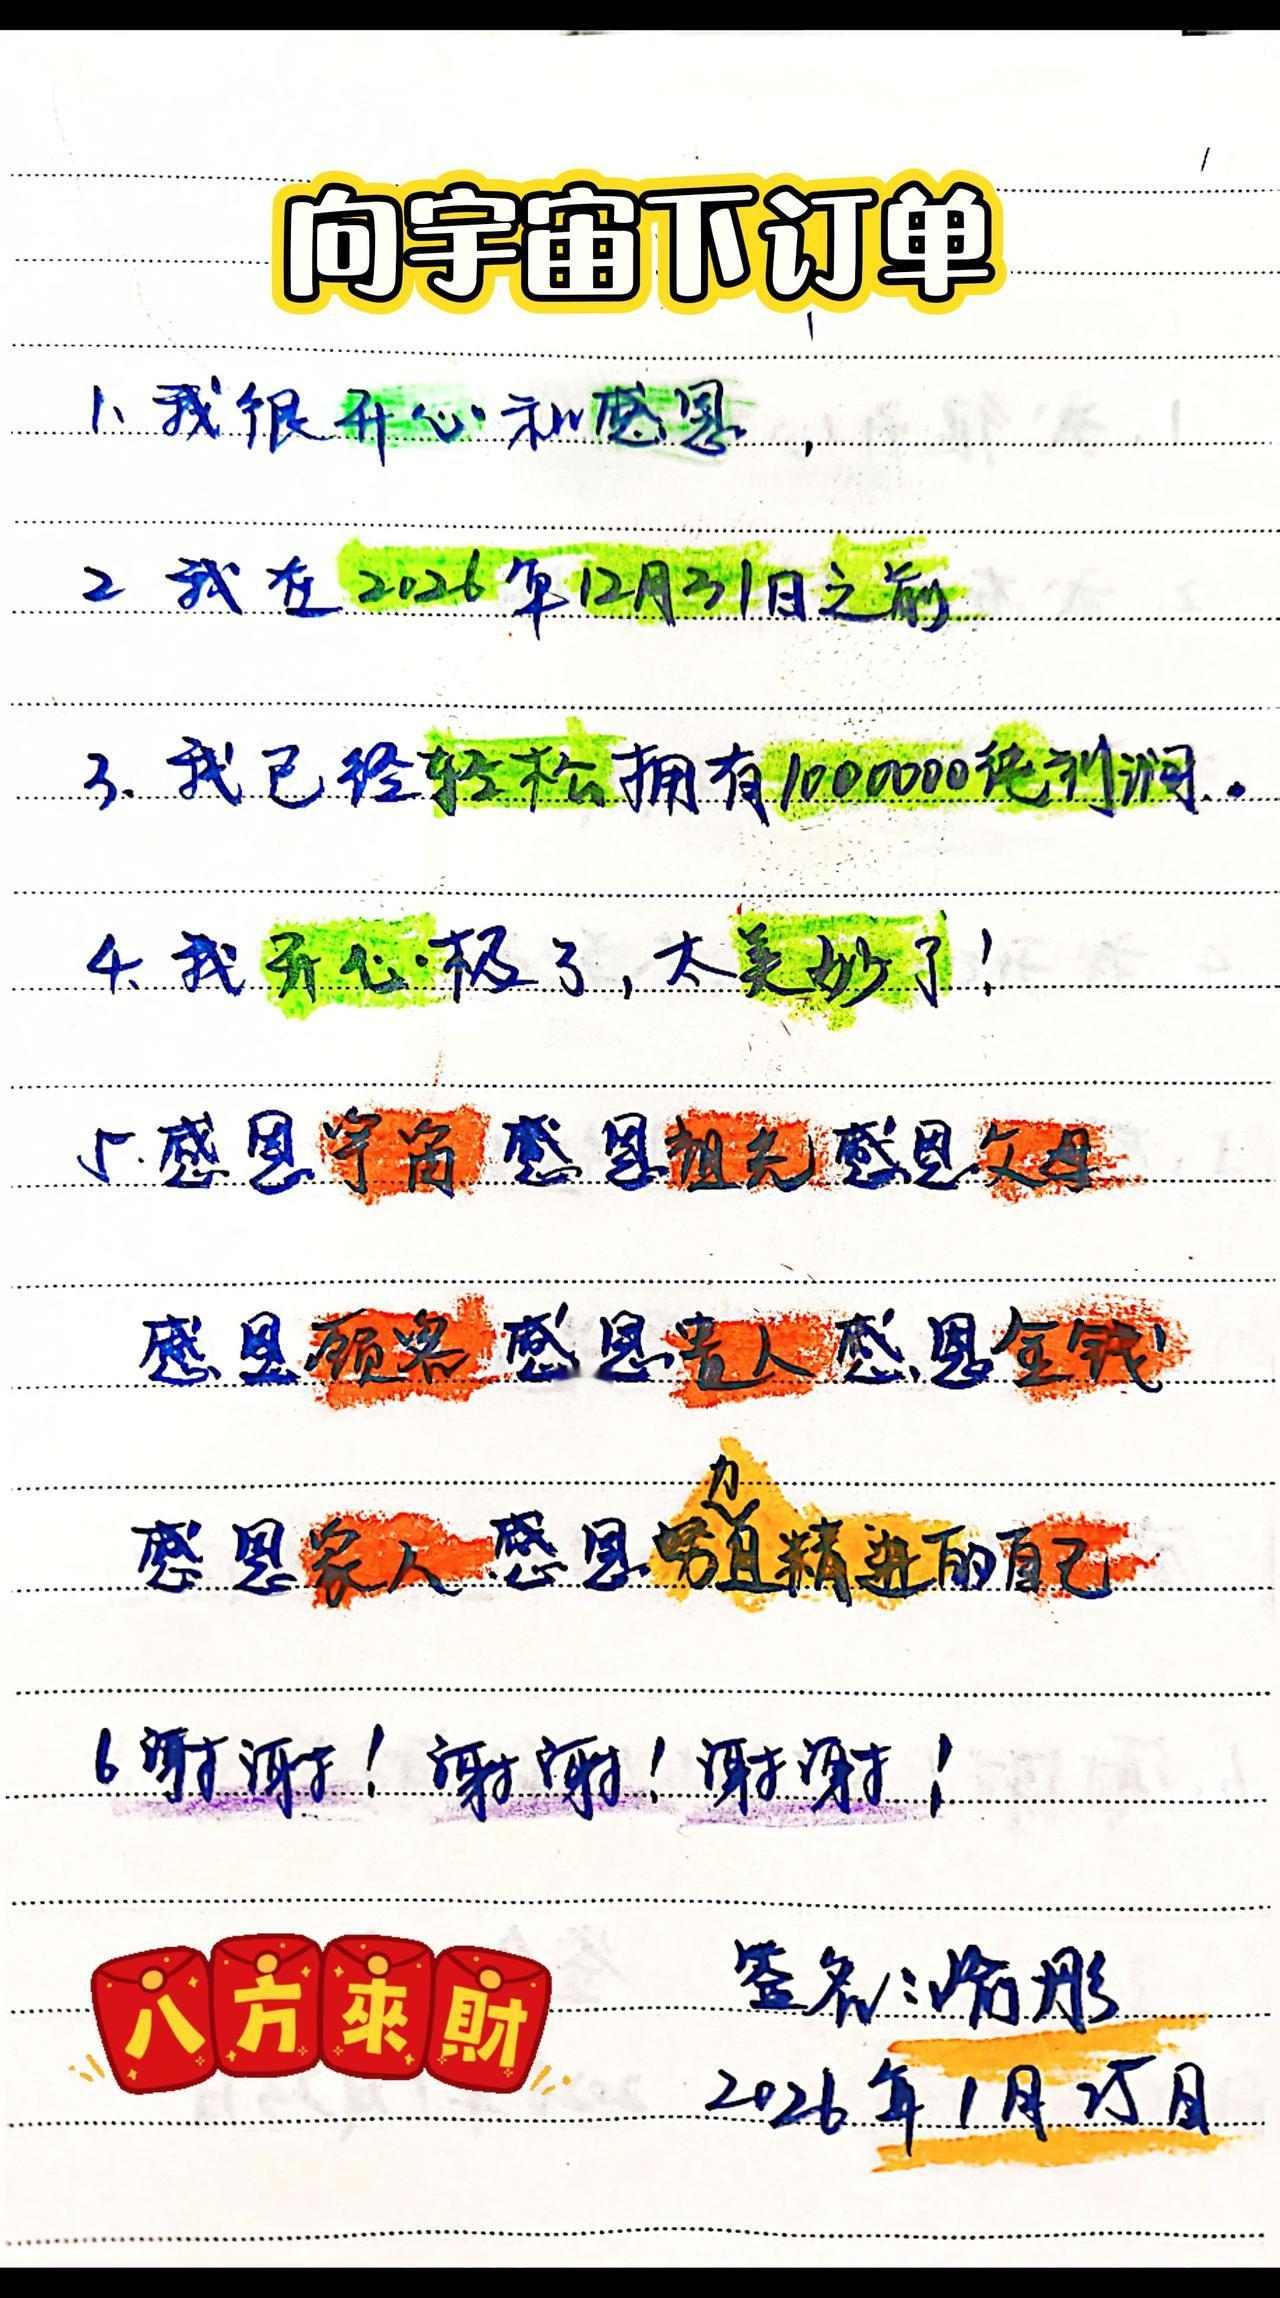 向宇宙下订单
1、我很开心和感恩,
2 我在2026年12月31日之前
3.我已经轻松拥有1000000纯利润.
4.我开心极了,太美妙了!
5.感恩宇宙 感恩祖先 感恩父母
感恩顾客 感恩贵人 感恩金钱
感恩家人 感恩努力且精进的自己
6 谢谢!谢谢!谢谢!
八方來財
签名:喻彤
2026年1月25日